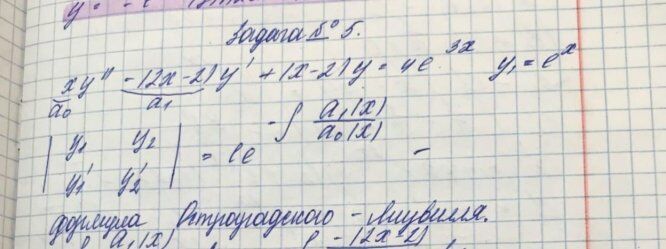 Задача № 5.
xy'' -(2x-2)y' + (x-2)y = 4e^{3x} y₁ = e^x
a₀ a₁
| y₁ y₂ | = ce^{-∫ a₁(x)/a₀(x)} -
| y₁' y₂' |
формула Остроградского - Лиувилля.
a₁(x) -(2x-2)